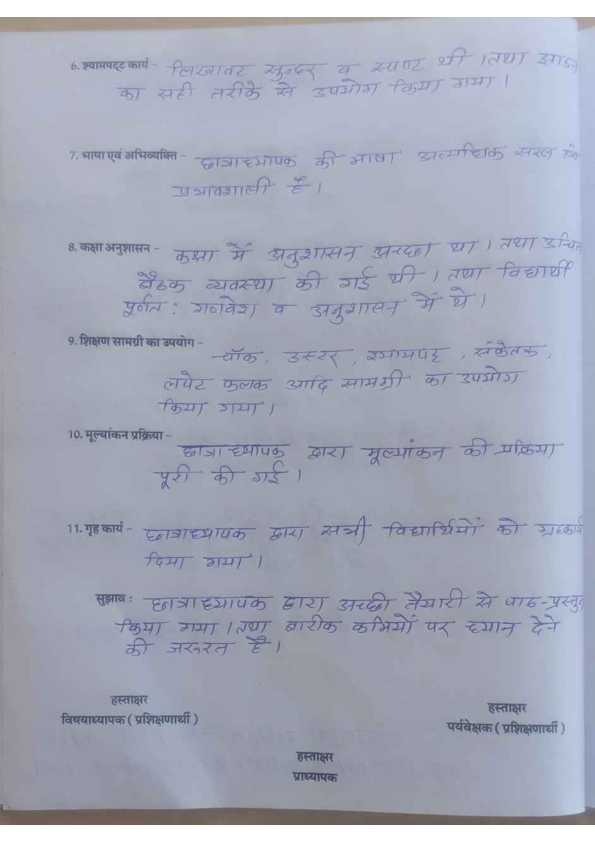 6. श्यामपट्ट कार्य - लिखावट सुन्दर व स्पष्ट थी । तथा
का सही तरीके से उपयोग किया गया ।
7. भाषा एवं अभिव्यक्ति - छात्राध्यापक की भाषा अत्यधिक सरल
प्रभावशाली हैं ।
8. कक्षा अनुशासन - कक्षा में अनुशासन अच्छा था । तथा उचित
बैठक व्यवस्था की गई थी । तथा विद्यार्थी
पूर्णत : गणवेश व अनुशासन में थे ।
9. शिक्षण सामग्री का उपयोग -
चॉक, डस्टर, श्यामपट्ट, संकेतक,
लपेट फलक आदि सामग्री का उपयोग
किया गया ।
10. मूल्यांकन प्रक्रिया -
छात्राध्यापक द्वारा मूल्यांकन की प्रक्रिया
पूरी की गई ।
11. गृह कार्य - छात्राध्यापक द्वारा सभी विद्यार्थियों को ग्रहकार्य
दिया गया ।
सुझाव : छात्राध्यापक द्वारा अच्छी तैयारी से पाठ-प्रस्तुत
किया गया । तथा बारीक कमियों पर ध्यान देने
की जरूरत है ।
हस्ताक्षर
विषयाध्यापक ( प्रशिक्षणार्थी )
हस्ताक्षर
पर्यवेक्षक ( प्रशिक्षणार्थी )
हस्ताक्षर
प्राध्यापक